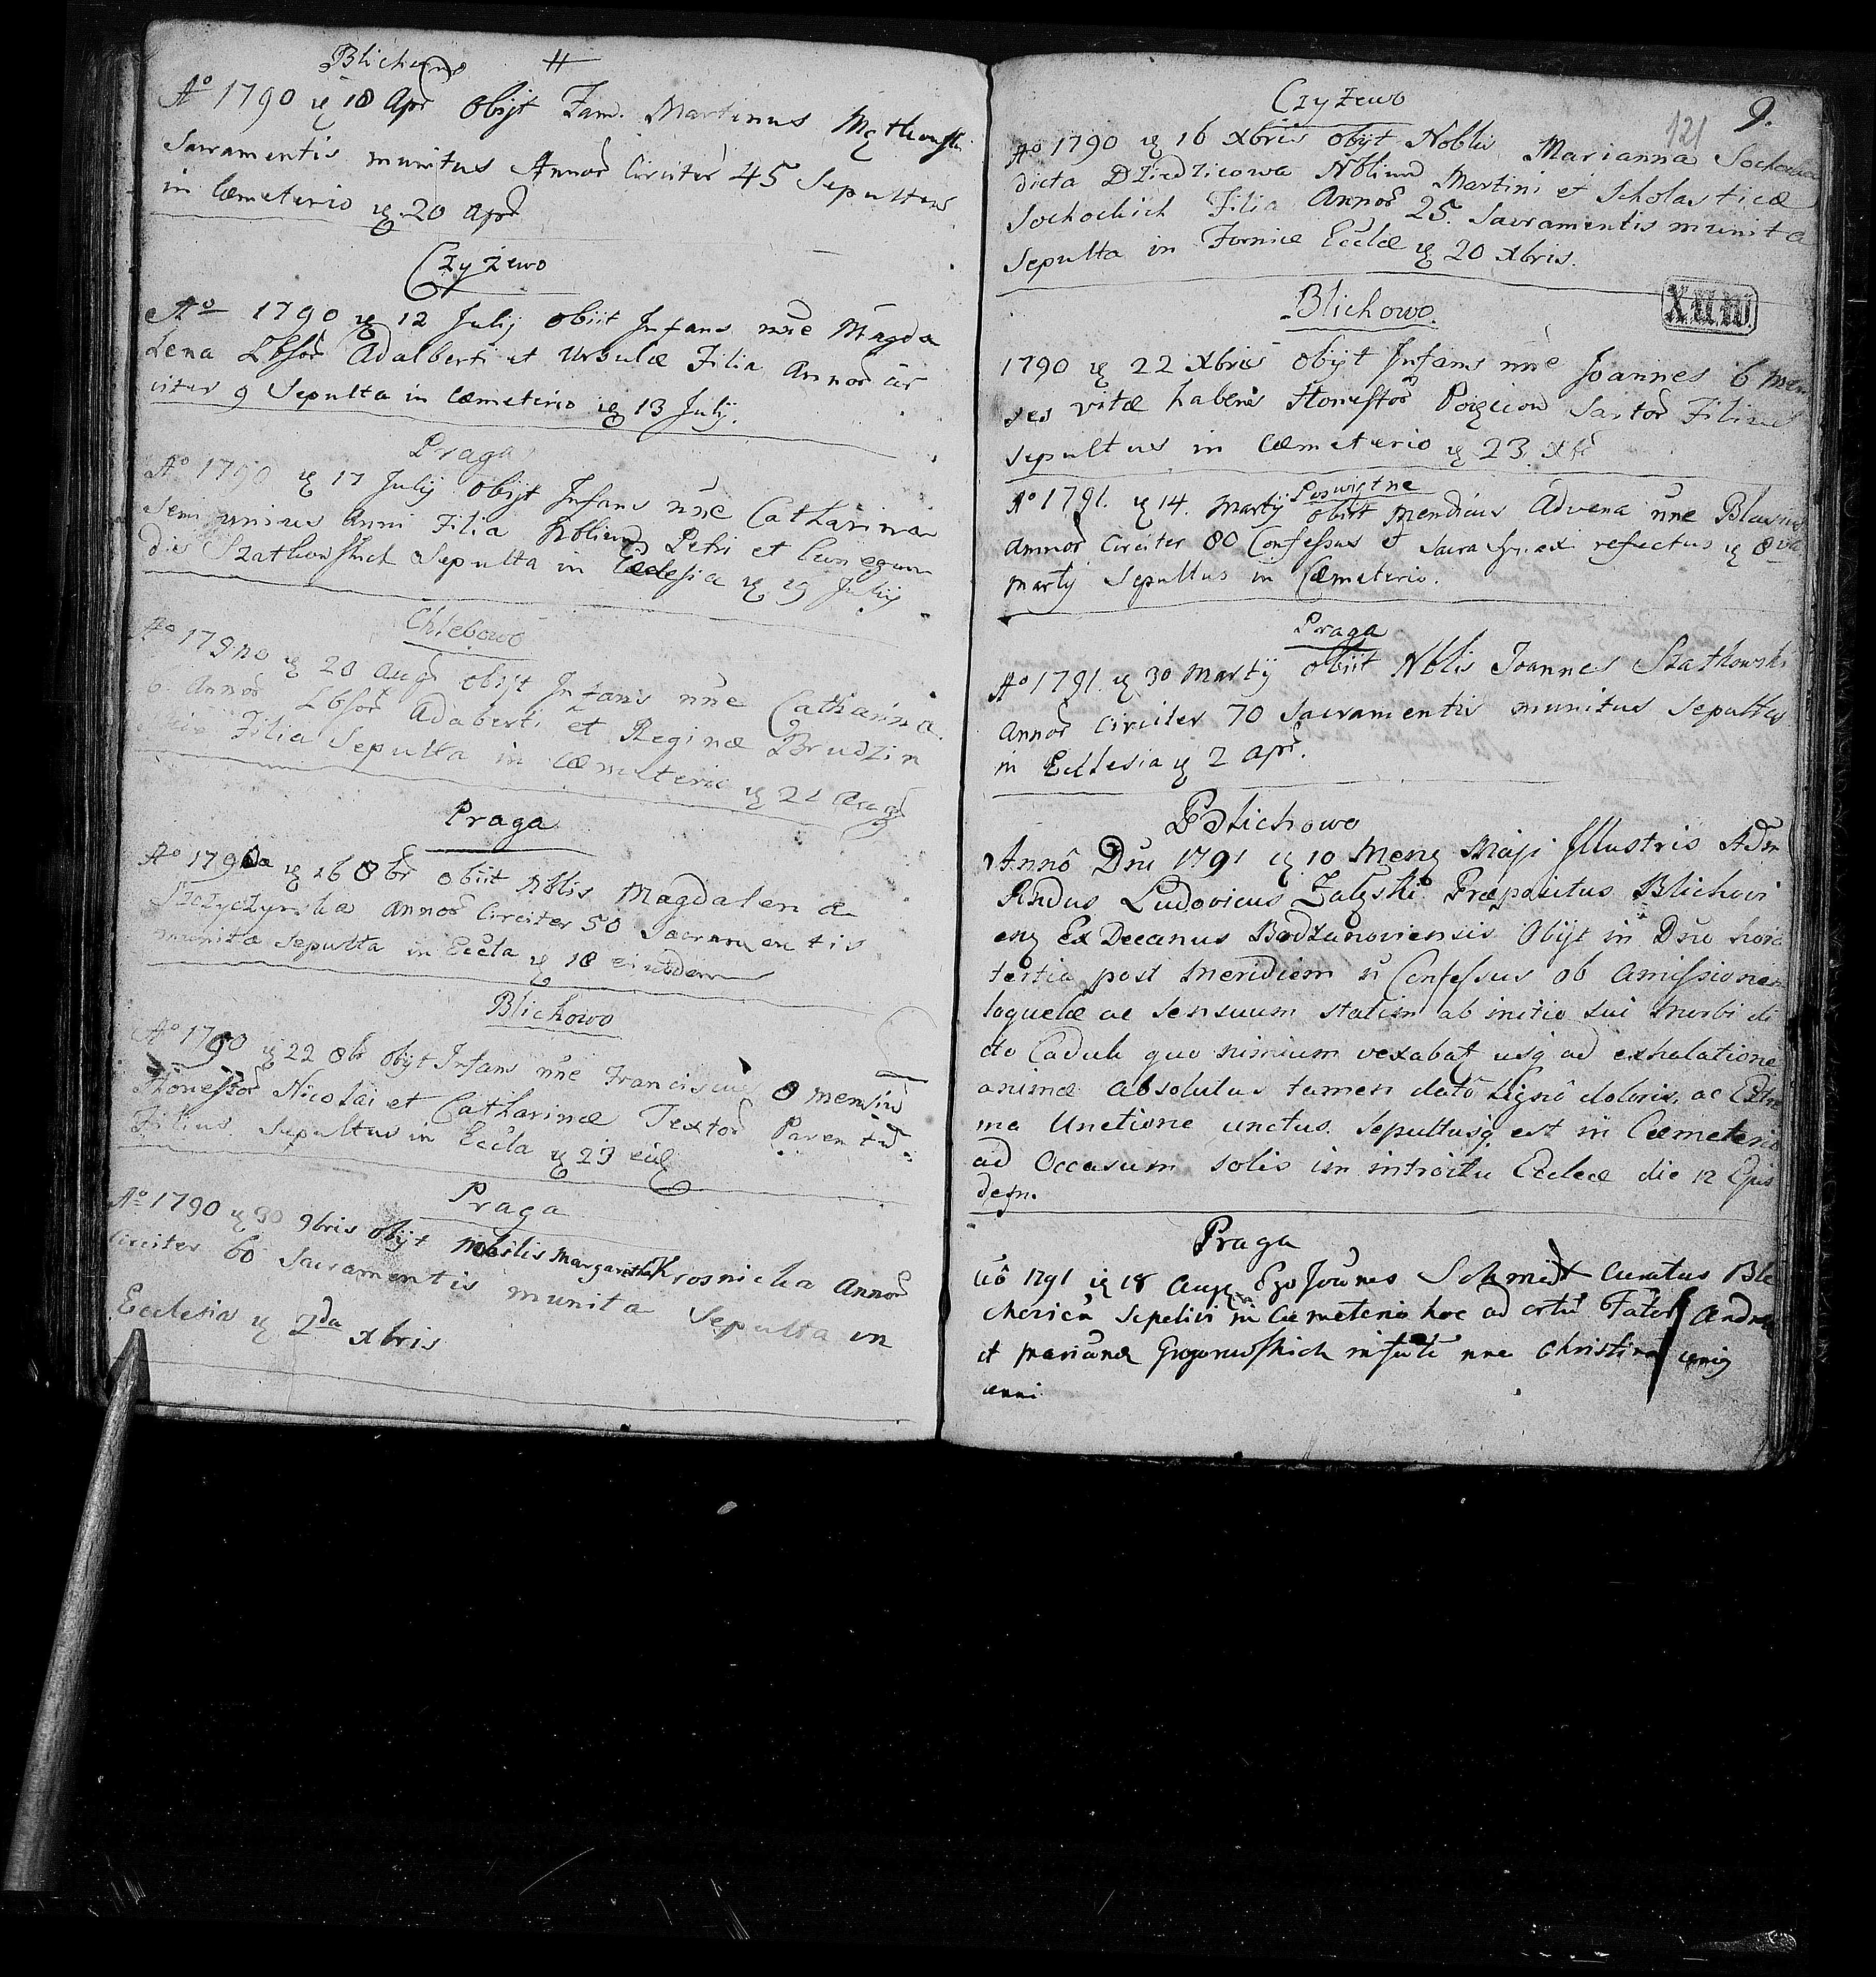 Blichowo
Aº 1790 ꝗ 18 Apr obijt Fam. Martinus
Sacramentis munitus Annor Circiter 45 Sepultus
in Cæmeterio ꝗ 20 Apr
Czyżewo
Aº 1790 ꝗ 12 Julij obiit Infans nne Magda
Lena Lbsor Adalberti et Ursulæ Filia Annor cir
citer 9 Sepulta in Cæmeterio ꝗ 13 Julij.
Praga
Aº 1790 ꝗ 17 Julij obijt Infans nne Catharina
Semi unius Anni Filia Nblium Petri et Cunegun
dis Szatkowskich Sepulta in Ecclesia ꝗ 19 Julij
Chlebowo
Aº 179no ꝗ 20 Aug obijt Infans nne Catharina
6 Annor Lbsor Adalberti et Reginæ Brudzin
Filia Sepulta in Cæmeterio ꝗ 21 Aug
Praga
Aº 1790 ꝗ 16 8br obiit Nblis Magdalena
Annor Circiter 50 Sacramentis
munita Sepulta in Eccla ꝗ 18 eiusdem
Blichowo
Aº 1790 ꝗ 22 8br obijt Infans nne Franciscus 8 mensiu
Honestor Nicolai et Catharinæ Textor Parentu
Filius Sepultus in Eccla ꝗ 23
Praga
Aº 1790 ꝗ 30 9bris obijt Nobilis Margaretha Krosnicka Annor
Circiter 60 Sacramentis munita Sepulta in
Ecclesia ꝗ 2da xbris
9.
121
Czyżewo
Aº 1790 ꝗ 16 Xbris obijt Noblis Marianna
dicta Dziedzicowa Nblium Martini et Scholasticæ
Sochockich Filia Annor 25. Sacramentis munita
Sepulta in Fornice Ecclæ ꝗ 20 Xbris.
Blichowo.
1790 ꝗ 22 Xbris obijt Infans nne Joannes 6 men
ses vitæ habens Honestor Sartor Filius
Sepultus in Cæmeterio ꝗ 23 Xbr
Poswiętne
Aº 1791. ꝗ 14. Martij obiit Mendicus Advena nne Blasius
Annor Circiter 80 Confessus et Sacra refectus ꝗ
Martij Sepultus in Cæmeterio.
Praga
Aº 1791. ꝗ 30 Martij obiit Nblis Joannes Szatkowski
Annor Circiter 70 Sacramentis munitus Sepultus
in Ecclesia ꝗ 2 Apr.
Blichowo
Annô Dni 1791 ꝗ 10 Mens Maji Illustris Adm
Rndus Ludovicus Zalęski Præpositus Blichovi
ens Ex Decanus Bodzanoviensis Obijt in Dno hora
tertia post meridiem n Confessus ob amissionem
loquelæ ac sensuum statim ab initio sui morbi di
cto Caduli quo nimium vexabat usq ad exhalatione
animæ absolutus tamen datô signô doloris, ac Extre
ma Unctione unctus. Sepultusq est in Cæmeterio
ad Occasum solis im introitu Ecclæ die 12 Ejus
dem.
Praga
1791 ꝗ 18 Aug Ego Joannes Schmidt Curatus Bli
choviens Sepelivi in Cæmeterio hoc ad ortu Andreæ
et Mariannæ infante nne Christina unig
anni